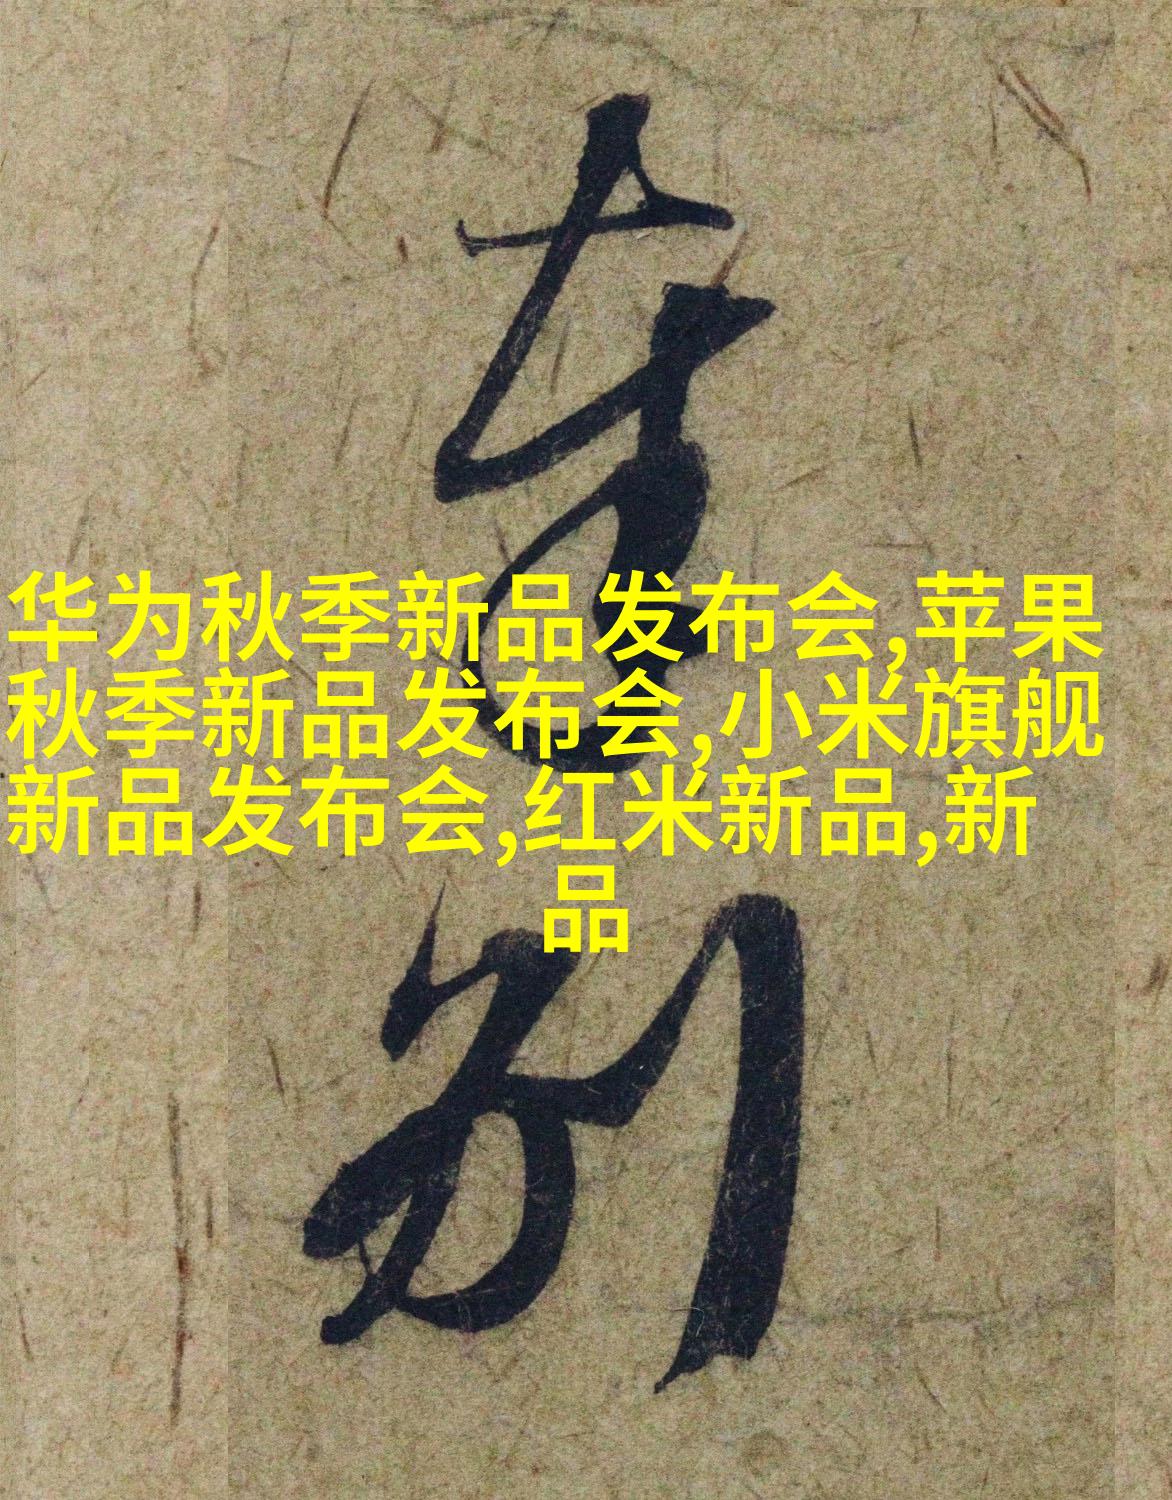 华为秋季新品发布会,苹果
秋季新品发布会,小米旗舰
新品发布会,红米新品,新
品